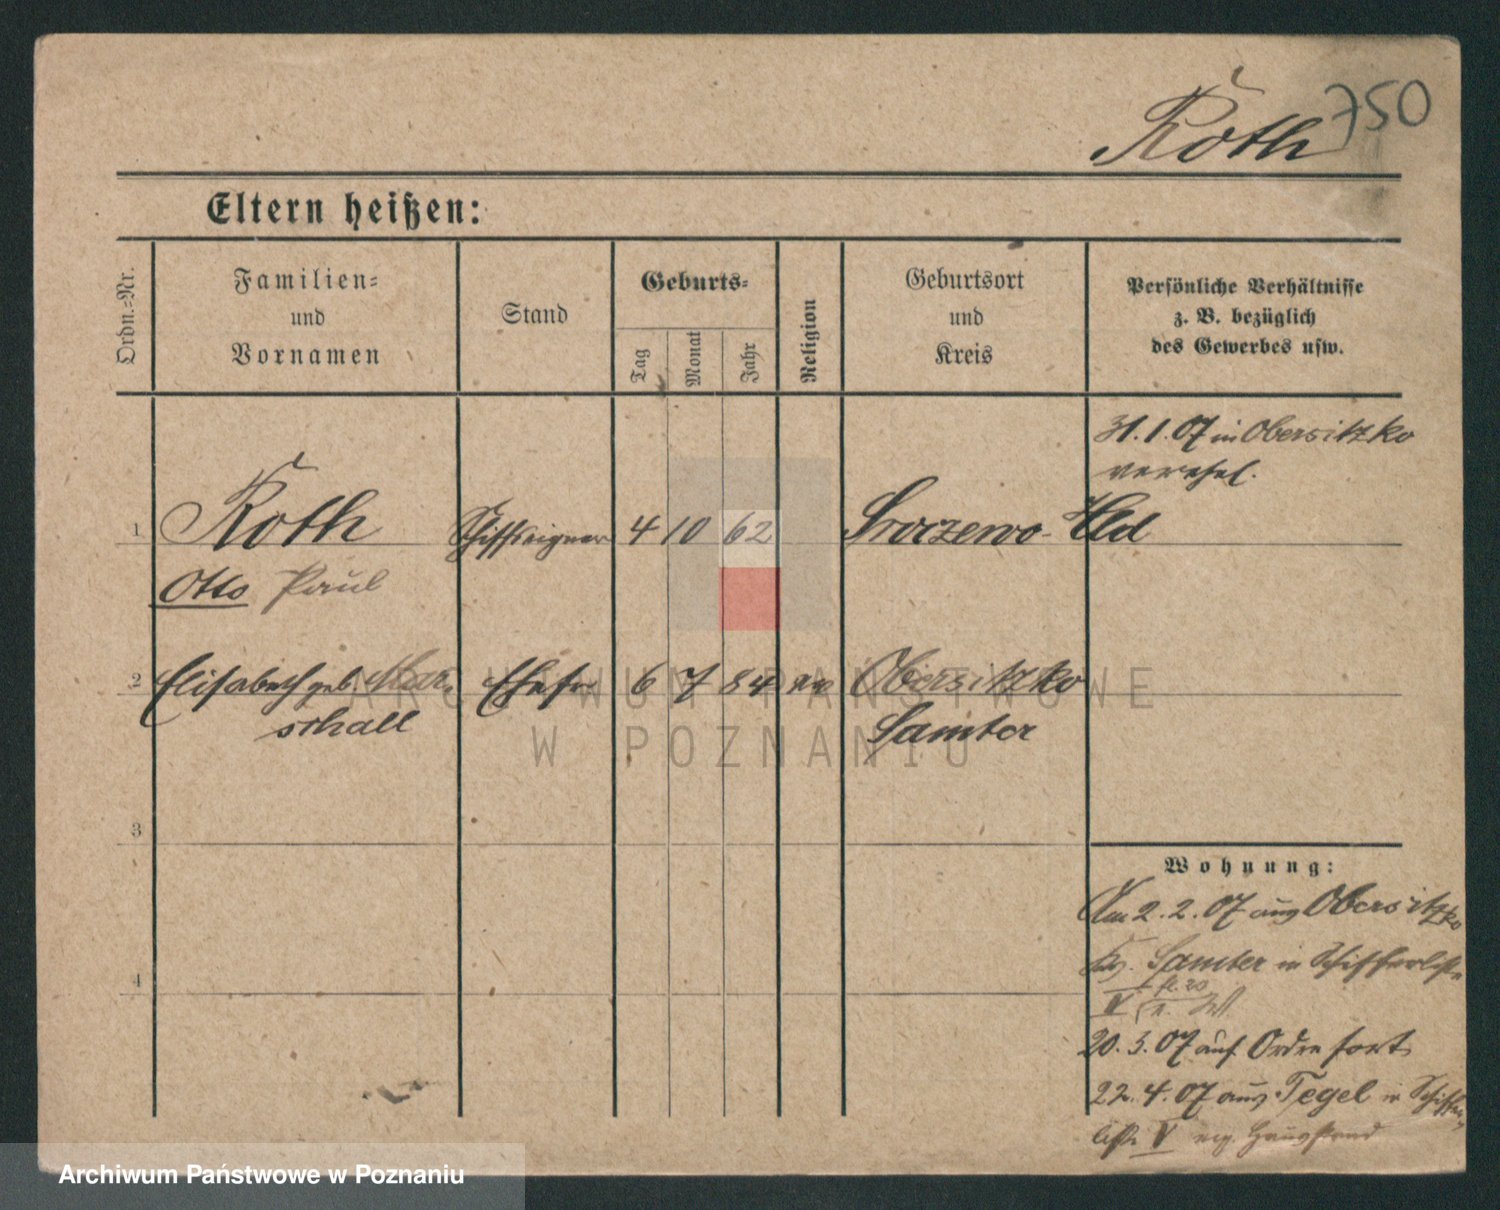 Roth 750
Eltern heißen:
Ordn.-Nr.
Familien-
und
Vornamen
Stand
Geburts-
Tag
Monat
Jahr
Religion
Geburtsort
und
Kreis
Persönliche Verhältnisse
z. B. bezüglich
des Gewerbes usw.
31.1.07 in Obersitzko
verehel.
1 Roth Schiffseigner 4 10 62 Hld
Otto Paul
2 Elisabeth geb. Mar- Ehefr 6 7 84 ev Obersitzko
schall Samter
3
4
Wohnung:
Am 2.2.07 aus Obersitzko
Krs. Samter in Schifferliste
V
20.3.07 auf Ordre fort
22.4.07 aus Tegel in Schiffer-
liste V eig. Hausstand
ARCHIWUM PAŃSTWOWE
W POZNANIU
Archiwum Państwowe w Poznaniu